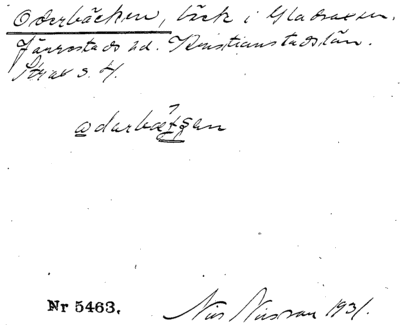 Oderbäcken, bäck i Gladsaxen.
Järrestads hd. Kristianstads län.
s. 4.
odarbætsen
Nr 5463.
Nils Nilsson 1931.